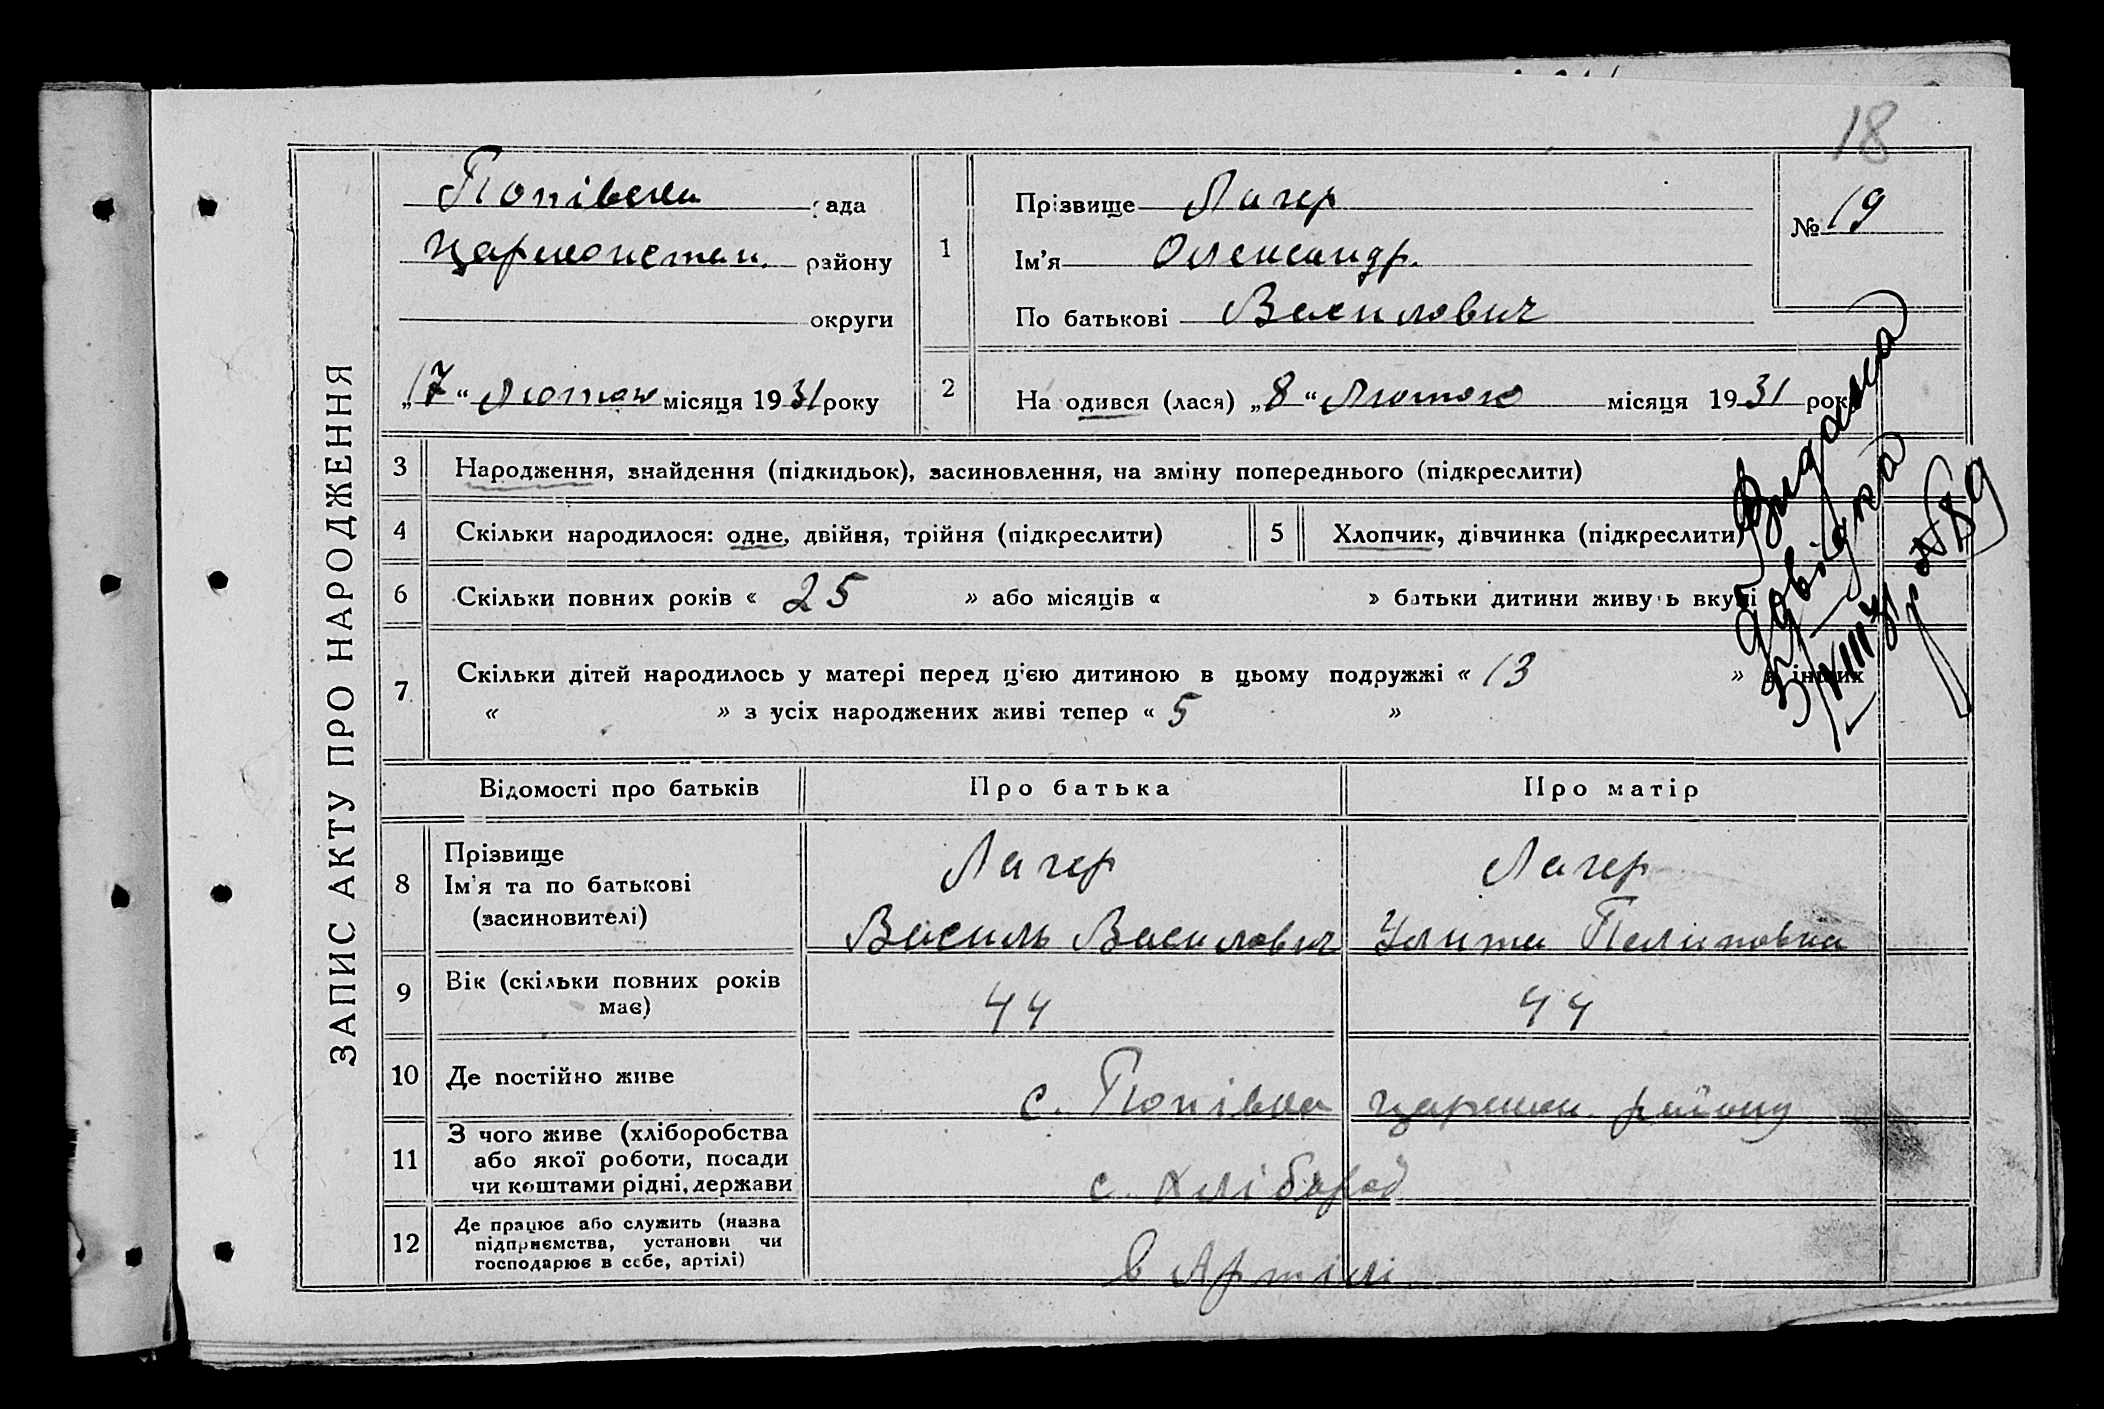 18
ЗАПИС АКТУ ПРО НАРОДЖЕННЯ
Попівська рада
району
округи
„17“ Лютого місяця 1931 року
1
Прізвище Лагер
Ім'я Олександр.
По батькові Василович
№ 19
2
На одився (лася) „8“ Лютого місяця 1931 рок
3
Народження, знайдення (підкидьок), засиновлення, на зміну попереднього (підкреслити)
4
Скільки народилося: одне, двійня, трійня (підкреслити)
5
Хлопчик, дівчинка (підкреслити)
6
Скільки повних років « 25 » або місяців « » батьки дитини живуть вкупі
7
Скільки дітей народилось у матері перед ц'єю дитиною в цьому подружжі « 13 » в інших
« » з усіх народжених живі тепер « 5 »
Видана
довідка
№ 89
Відомості про батьків
Про батька
Про матір
8
Прізвище
Ім'я та по батькові
(засиновителі)
Лагер
Василь Василович
Лагер
Улита
9
Вік (скільки повних років
має)
44
44
10
Де постійно живе
с. Попівка царичан. району
11
З чого живе (хліборобства
або якої роботи, посади
чи коштами рідні, держави
с. хлібороб
12
Де працює або служить (назва
підприємства, установи чи
господарює в себе, артілі)
в Артілі